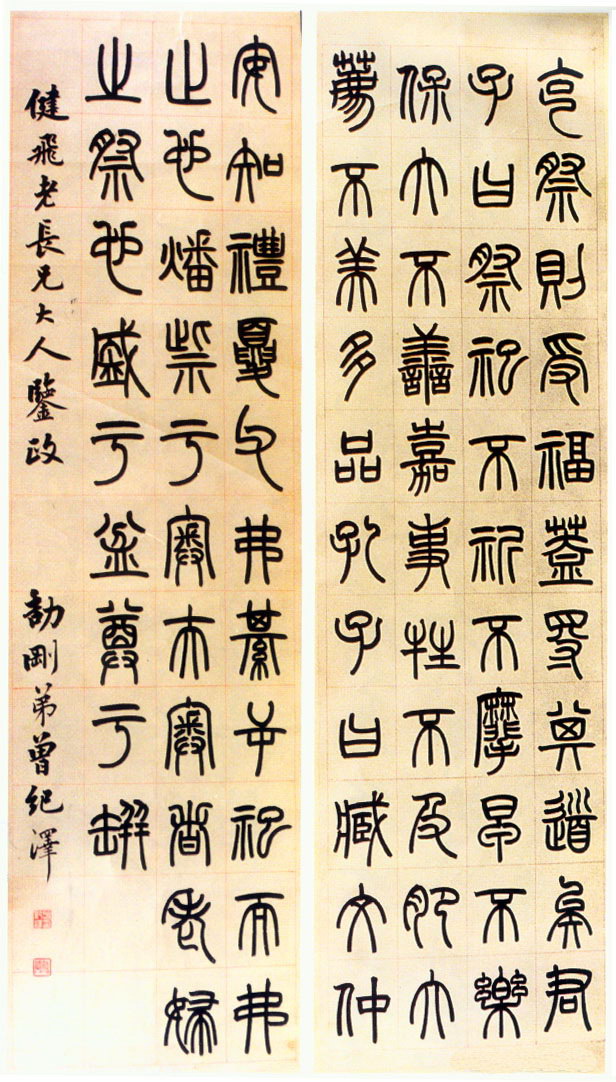 克祭則受福蓋得其道矣君
子曰祭祀不祈不摩早不樂
保大不善嘉事牲不及肥大
薦不美多品孔子曰臧文仲
安知禮夏父弗綦屰祀而弗
止也燔祡于奧夫奧者老婦
之祭也盛于盆尊于缾
健飛老長兄大人鑒政 劼剛弟曾紀澤